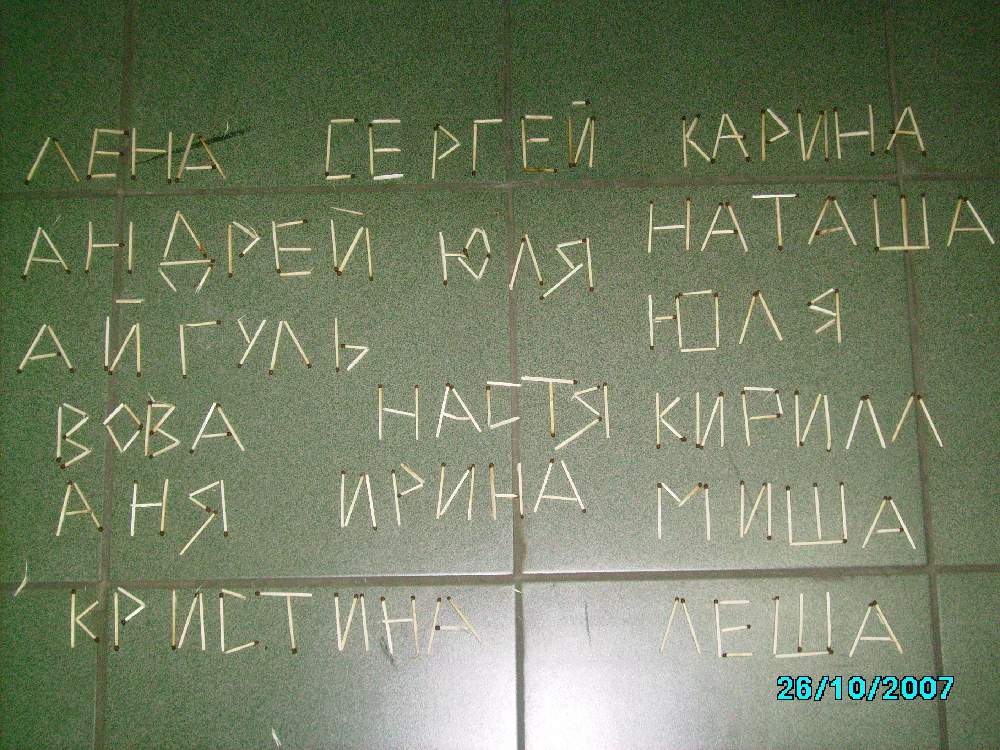 ЛЕНА СЕРГЕЙ КАРИНА
АНДРЕЙ ЮЛЯ НАТАША
АЙГУЛЬ ЮЛЯ
ВОВА НАСТЯ КИРИЛЛ
АНЯ ИРИНА МИША
КРИСТИНА ЛЕША
26/10/2007